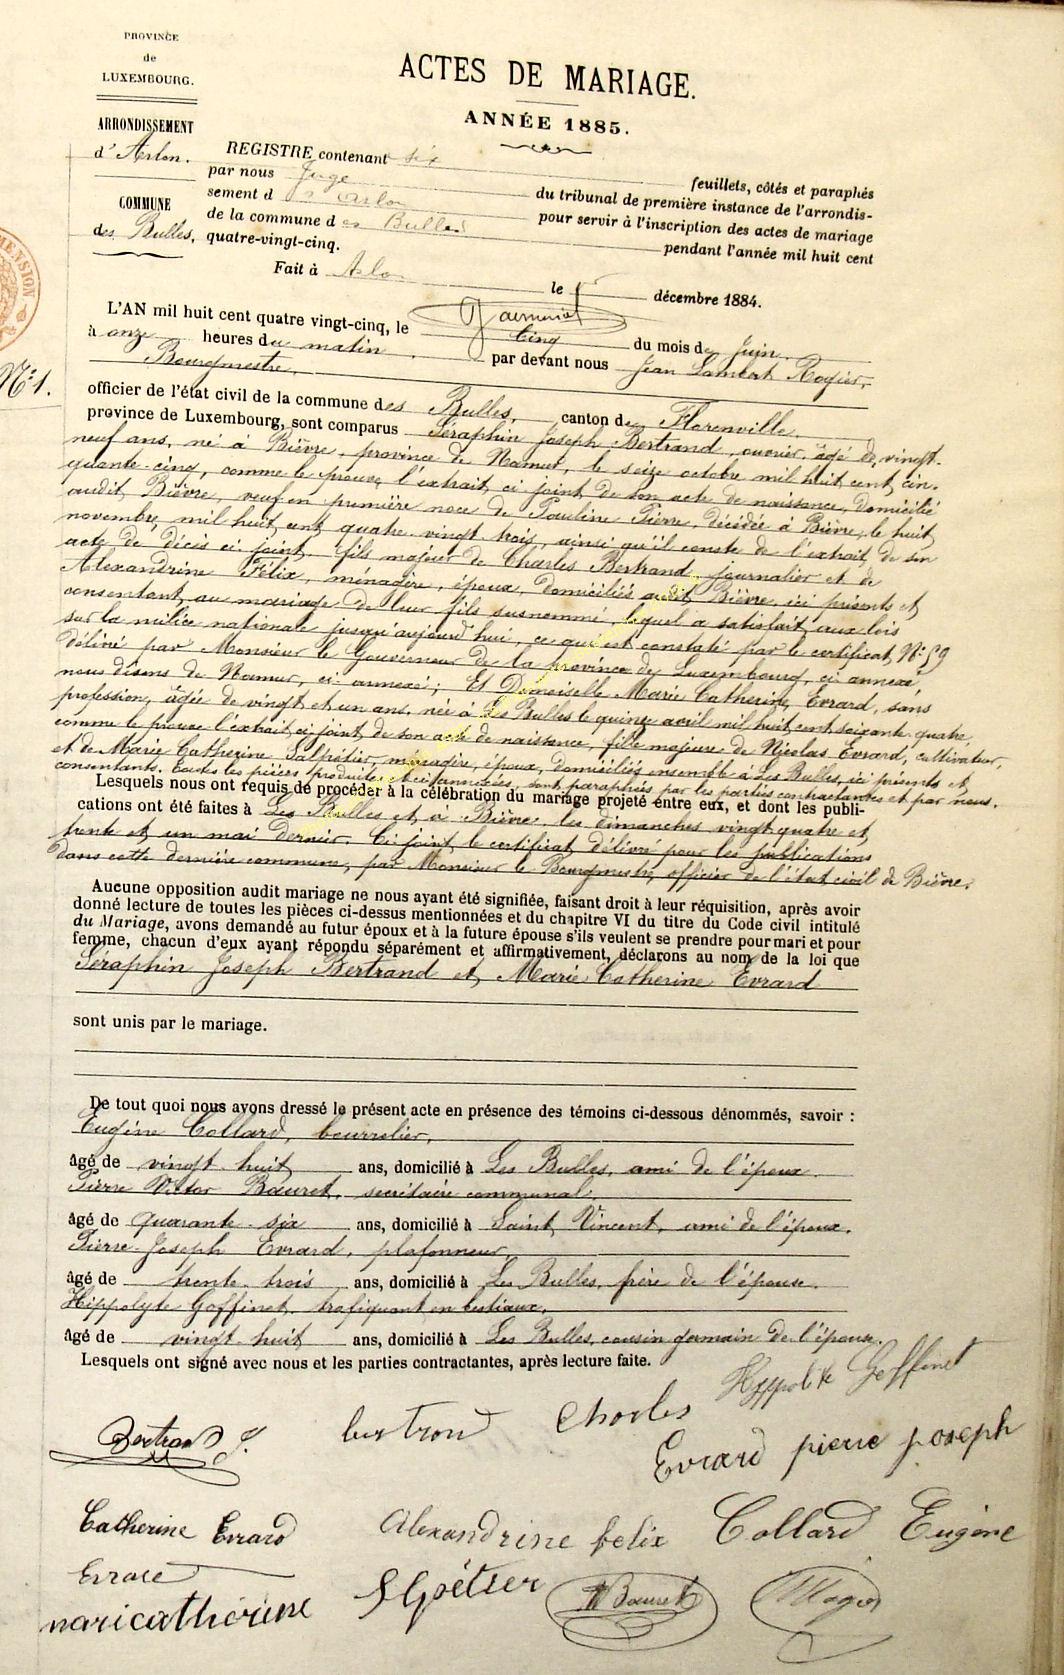 PROVINCE
de
LUXEMBOURG.
ARRONDISSEMENT
d'Arlon.
COMMUNE
des Bulles,
ACTES DE MARIAGE.
ANNÉE 1885.
REGISTRE contenant six feuillets, côtés et paraphés
par nous Juge du tribunal de première instance de l'arrondis-
sement d'Arlon pour servir à l'inscription des actes de mariage
de la commune des Bulles pendant l'année mil huit cent
quatre-vingt-cinq.
Fait à Arlon le décembre 1884.
N° 1.
L'AN mil huit cent quatre vingt-cinq, le Cinq du mois de Juin
à onze heures du matin par devant nous Jean Lambert Rogier,
Bourgmestre,
officier de l'état civil de la commune des Bulles, canton de Florenville
province de Luxembourg, sont comparus Séraphin Joseph Bertrand, ouvrier, âgé de vingt-
neuf ans, né à Bièvre, province de Namur, le seize octobre mil huit cent cin-
quante-cinq, comme le prouve l'extrait ci joint de son acte de naissance, domicilié
audit Bièvre, veuf en première noce de Pauline Pierre, décédée à Bièvre, le huit
novembre mil huit cent quatre-vingt trois, ainsi qu'il conste de l'extrait de son
acte de décès ci joint, fils majeur de Charles Bertrand, journalier et de
Alexandrine Félix, ménagère, époux, domiciliés audit Bièvre, ici présents et
consentant au mariage de leur fils susnommé, lequel a satisfait aux lois
sur la milice nationale jusqu'aujourd'hui, ce qui est constaté par le certificat N° 59
délivré par Monsieur le Gouverneur de la province de Luxembourg, ci annexé,
nous disons de Namur, ci-annexé; Et Demoiselle Marie Catherine Evrard, sans
profession, âgée de vingt et un ans, née à Les Bulles le quinze avril mil huit cent soixante quatre,
comme le prouve l'extrait ci joint de son acte de naissance, fille majeure de Nicolas Evrard, cultivateur,
et de Marie Catherine Salpétier, ménagère, époux, domiciliés ensemble à Les Bulles, ici présents et
consentants. Toutes les pièces produites et ci annexées, sont paraphées par les parties contractantes et par nous.
Lesquels nous ont requis de procéder à la célébration du mariage projeté entre eux, et dont les publi-
cations ont été faites à Les Bulles et à Bièvre, les dimanches vingt quatre et
trente et un mai dernier. Ci joint le certificat délivré pour les publications
dans cette dernière commune, par Monsieur le Bourgmestre, officier de l'état civil de Bièvre.
Aucune opposition audit mariage ne nous ayant été signifiée, faisant droit à leur réquisition, après avoir
donné lecture de toutes les pièces ci-dessus mentionnées et du chapitre VI du titre du Code civil intitulé
du Mariage, avons demandé au futur époux et à la future épouse s'ils veulent se prendre pour mari et pour
femme, chacun d'eux ayant répondu séparément et affirmativement, déclarons au nom de la loi que
Séraphin Joseph Bertrand et Marie Catherine Evrard
sont unis par le mariage.
De tout quoi nous avons dressé le présent acte en présence des témoins ci-dessous dénommés, savoir :
Eugène Collard, bourrelier,
âgé de vingt-huit ans, domicilié à Les Bulles, ami de l'époux.
Pierre Victor Bauret, secrétaire communal,
âgé de quarante-six ans, domicilié à Saint Vincent, ami de l'époux.
Pierre-Joseph Evrard, plafonneur,
âgé de trente-trois ans, domicilié à Les Bulles, frère de l'épouse.
Hippolyte Goffinet, trafiquant en bestiaux,
âgé de vingt-huit ans, domicilié à Les Bulles, cousin germain de l'épouse.
Lesquels ont signé avec nous et les parties contractantes, après lecture faite.
Hyppolite Goffinet
Bertrand S. bertrand Charles
Evrard pierre joseph
Catherine Evrard Alexandrine felix Collard Eugène
Evrard
maricathérine Bauret Rogier